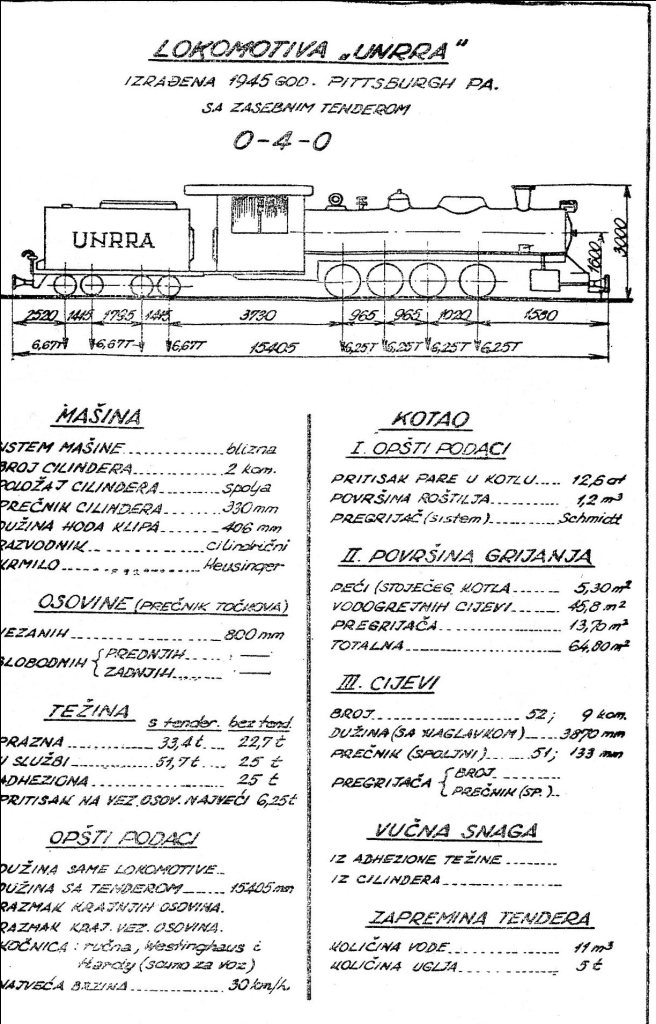 LOKOMOTIVA „UNRRA“
IZRAĐENA 1945 GOD. PITTSBURGH PA.
SA ZASEBNIM TENDEROM
0-4-0
UNRRA
1600
3000
2520 1445 1795 1445 3730 965 965 1020 1580
6,67T 6,67T 6,67T 15405 6,25T 6,25T 6,25T 6,25T
MAŠINA
ISTEM MAŠINE blizna
BROJ CILINDERA 2 kom.
POLOŽAJ CILINDERA spolja
PREČNIK CILINDERA 330 mm
DUŽINA HODA KLIPA 406 mm
RAZVODNIK cilindrični
KRMILO „ „ „ Heusinger
OSOVINE (PREČNIK TOČKOVA)
VEZANIH 800 mm
SLOBODNIH { PREDNJIH —
ZADNJIH —
TEŽINA s tender. bez tend.
PRAZNA 33,4 t 22,7 t
U SLUŽBI 51,7 t 25 t
ADHEZIONA 25 t
PRITISAK NA VEZ. OSOV. NAJVEĆI 6,25 t
OPŠTI PODACI
DUŽINA SAME LOKOMOTIVE
DUŽINA SA TENDEROM 15405 mm
RAZMAK KRAJNJIH OSOVINA.
RAZMAK KRAJ. VEZ. OSOVINA.
KOČNICA: ručna, Westinghaus i
Hardy (samo za voz)
NAJVEĆA BRZINA 30 km/h.
KOTAO
I. OPŠTI PODACI
PRITISAK PARE U KOTLU 12,6 at
POVRŠINA ROŠTILJA 1,2 m³
PREGRIJAČ (sistem) Schmidt
II. POVRŠINA GRIJANJA
PEĆI (STOJEĆEG KOTLA 5,30 m²
VODOGREJNIH CIJEVI 45,8 m²
PREGRIJAČA 13,70 m²
TOTALNA 64,80 m²
III. CIJEVI
BROJ 52; 9 kom.
DUŽINA (SA NAGLAVKOM) 3870 mm
PREČNIK (SPOLJNI) 51; 133 mm
PREGRIJAČA { BROJ
PREČNIK (SP.)
VUČNA SNAGA
IZ ADHEZIONE TEŽINE
IZ CILINDERA
ZAPREMINA TENDERA
KOLIČINA VODE 11 m³
KOLIČINA UGLJA 5 t